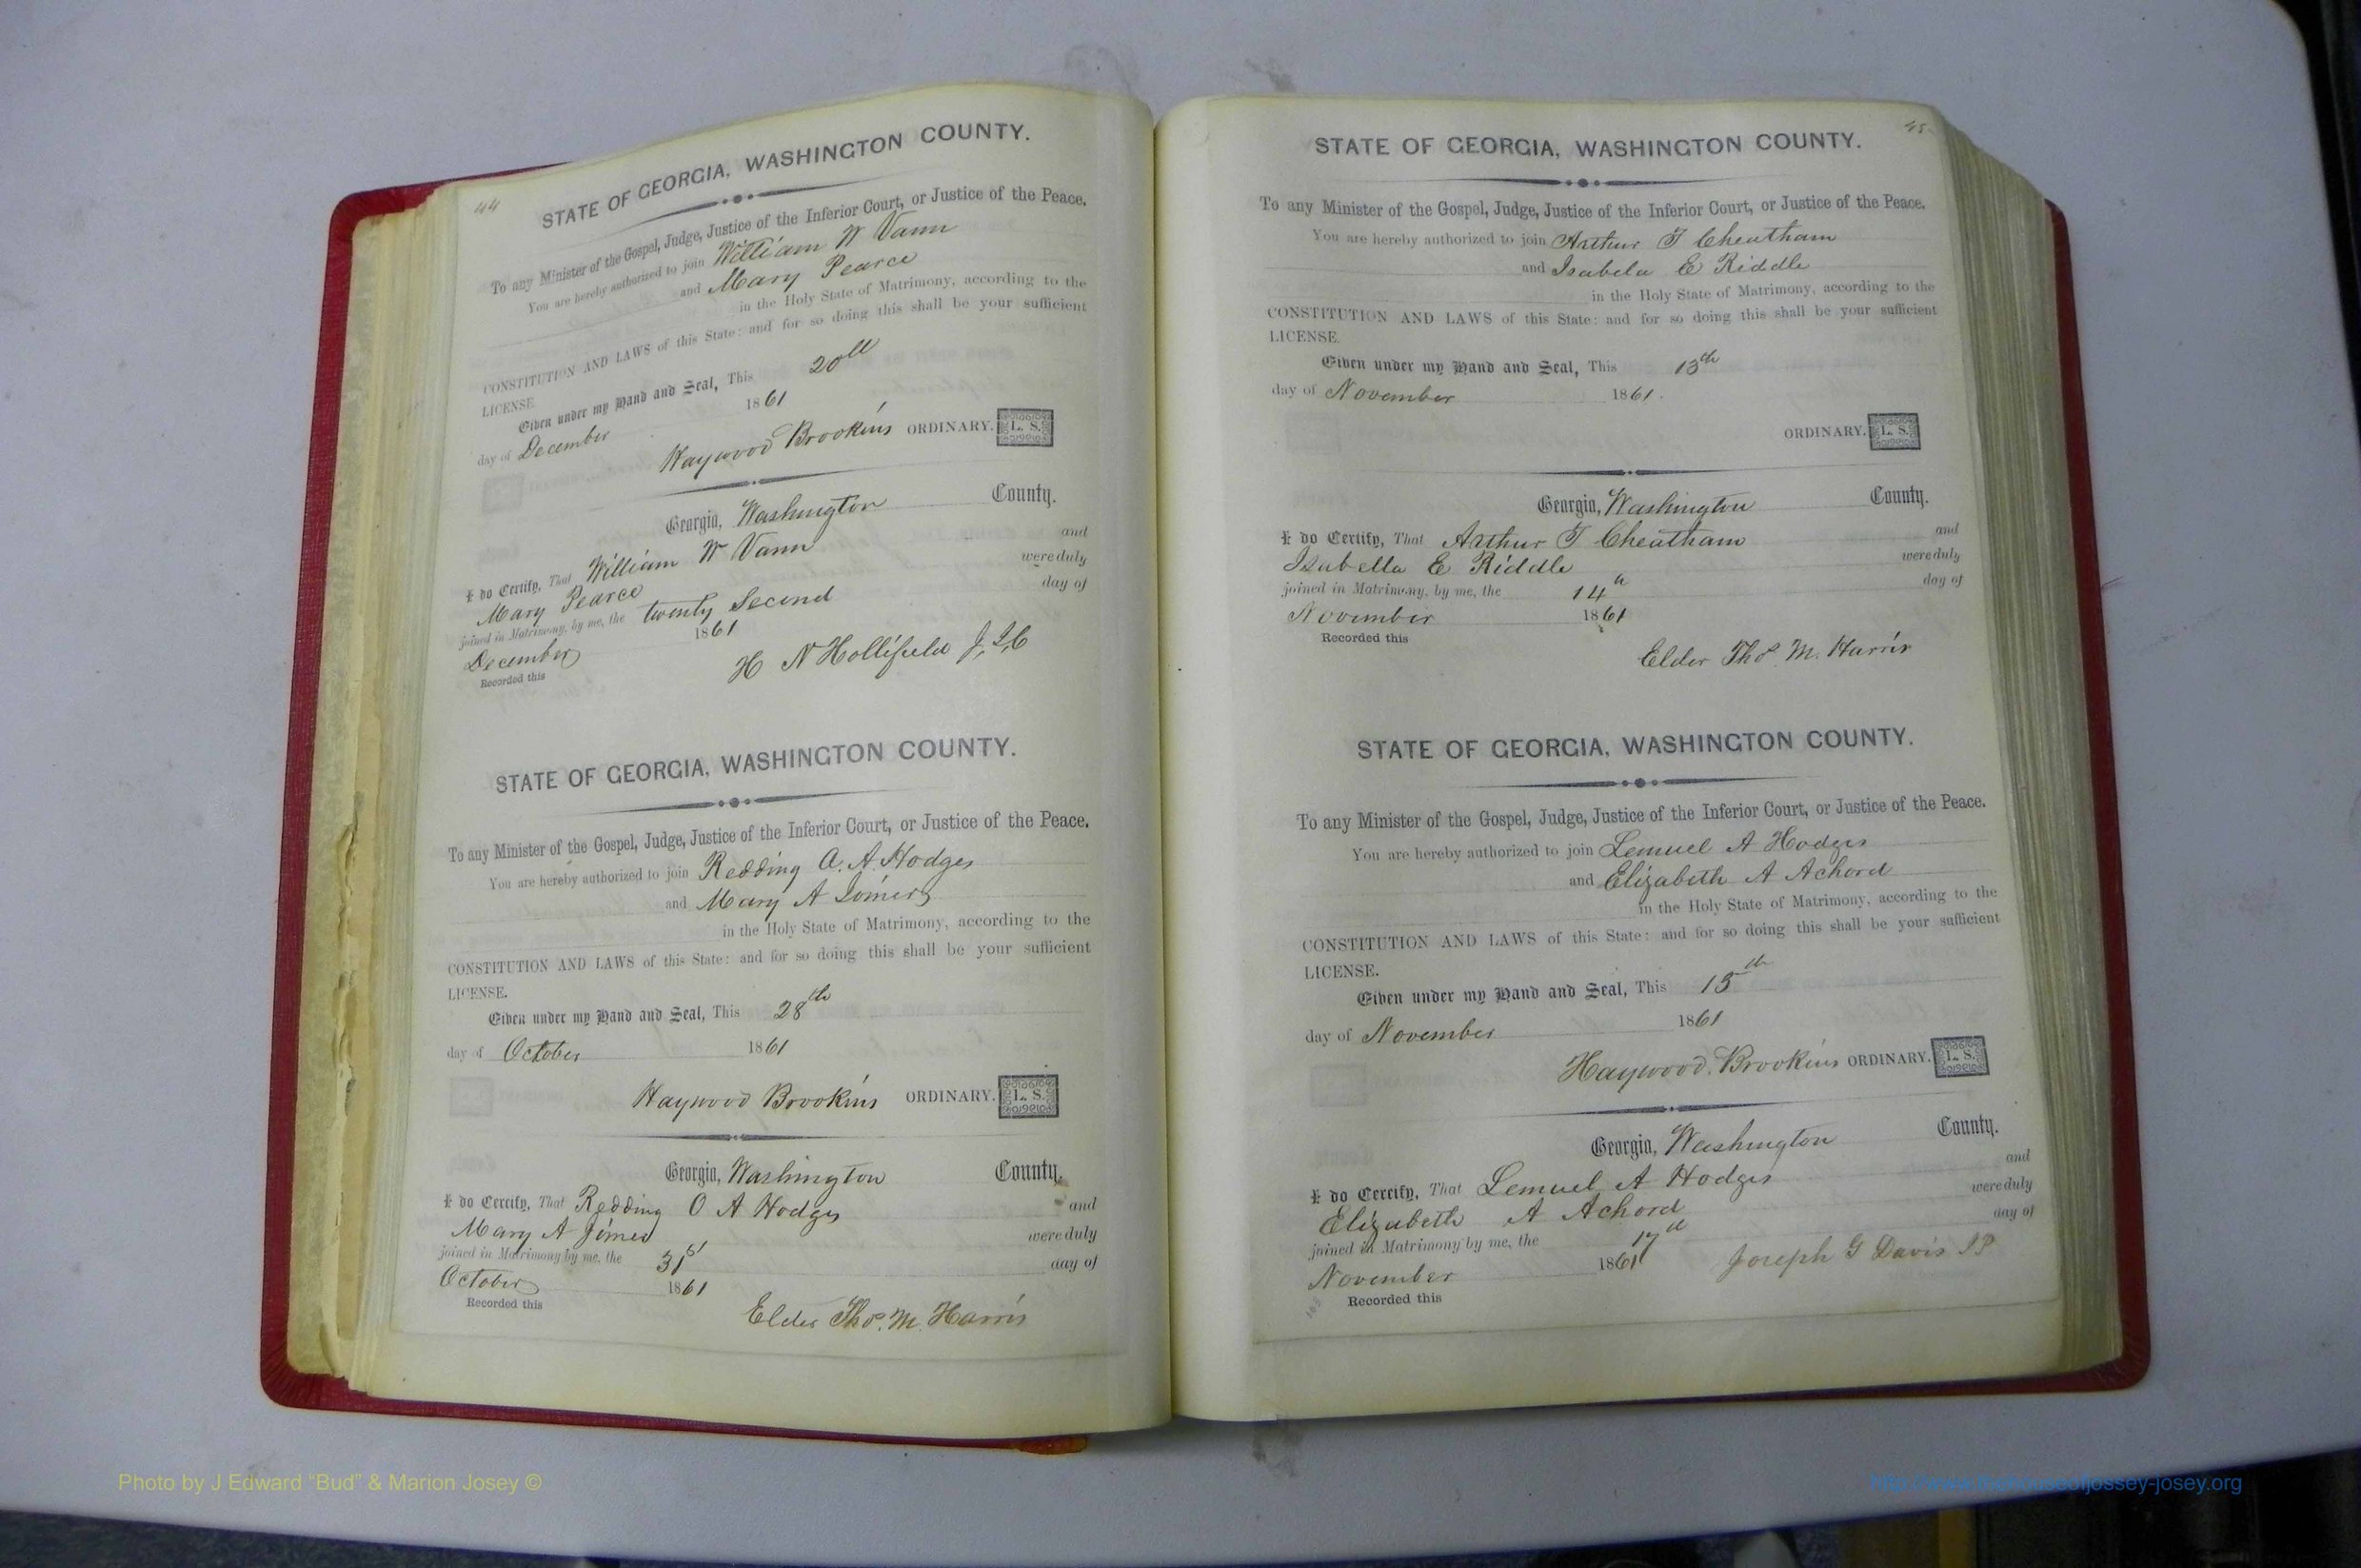 44
STATE OF GEORGIA, WASHINGTON COUNTY.
To any Minister of the Gospel, Judge, Justice of the Inferior Court, or Justice of the Peace.
You are hereby authorized to join William W Vann
and Mary Pearce
in the Holy State of Matrimony, according to the
CONSTITUTION AND LAWS of this State: and for so doing this shall be your sufficient
LICENSE.
Given under my Hand and Seal, This 20th
day of December 1861
Haywood Brookins ORDINARY. L. S.
Georgia, Washington County.
I do Certify, That William W Vann and
Mary Pearce were duly
joined in Matrimony, by me, the twenty Second day of
December 1861
Recorded this
H N Hollifield J, I, C
STATE OF GEORGIA, WASHINGTON COUNTY.
To any Minister of the Gospel, Judge, Justice of the Inferior Court, or Justice of the Peace.
You are hereby authorized to join Redding O. A. Hodges
and Mary A Joiner
in the Holy State of Matrimony, according to the
CONSTITUTION AND LAWS of this State: and for so doing this shall be your sufficient
LICENSE.
Given under my Hand and Seal, This 28th
day of October 1861
Haywood Brookins ORDINARY. L. S.
Georgia, Washington County.
I do Certify, That Redding O A Hodges and
Mary A Joiner were duly
joined in Matrimony by me, the 31st day of
October 1861
Recorded this
Elder Thos. M. Harris
45
STATE OF GEORGIA, WASHINGTON COUNTY.
To any Minister of the Gospel, Judge, Justice of the Inferior Court, or Justice of the Peace.
You are hereby authorized to join Arthur T Cheatham
and Isabela E Riddle
in the Holy State of Matrimony, according to the
CONSTITUTION AND LAWS of this State: and for so doing this shall be your sufficient
LICENSE.
Given under my Hand and Seal, This 13th
day of November 1861.
ORDINARY. L. S.
Georgia, Washington County.
I do Certify, That Arthur T Cheatham and
Isabella E Riddle were duly
joined in Matrimony, by me, the 14th day of
November 1861
Recorded this
Elder Thos. M. Harris
STATE OF GEORGIA, WASHINGTON COUNTY.
To any Minister of the Gospel, Judge, Justice of the Inferior Court, or Justice of the Peace.
You are hereby authorized to join Lemuel A Hodges
and Elizabeth A Achord
in the Holy State of Matrimony, according to the
CONSTITUTION AND LAWS of this State: and for so doing this shall be your sufficient
LICENSE.
Given under my Hand and Seal, This 15th
day of November 1861
Haywood Brookins ORDINARY. L. S.
Georgia, Washington County.
I do Certify, That Lemuel A Hodges and
Elizabeth A Achord were duly
joined in Matrimony by me, the 17th day of
November 1861 Joseph G Davis JP
Recorded this
Photo by J Edward "Bud" & Marion Josey ©
http://www.thehouseofjossey-josey.org